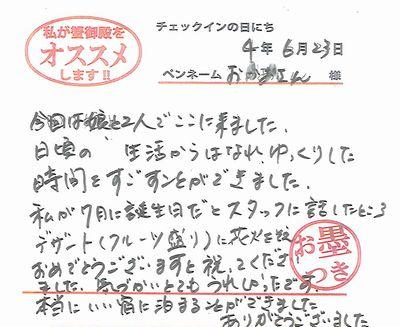 私が蟹御殿を
オススメ
します!!
チェックインの日にち
4年 6月 23日
ペンネーム おかあさん 様
今回は娘と2人でここに来ました。
日頃の 生活からはなれ、ゆっくりした
時間をすごすことができました。
私が7月に誕生日だとスタッフに話したところ
デザート(フルーツ盛り)に花火を
おめでとうございますと祝ってくださ
ました。気づかいとてもうれしかったです。
本当にいい宿に泊まることができました
ありがとうございました
お墨つき